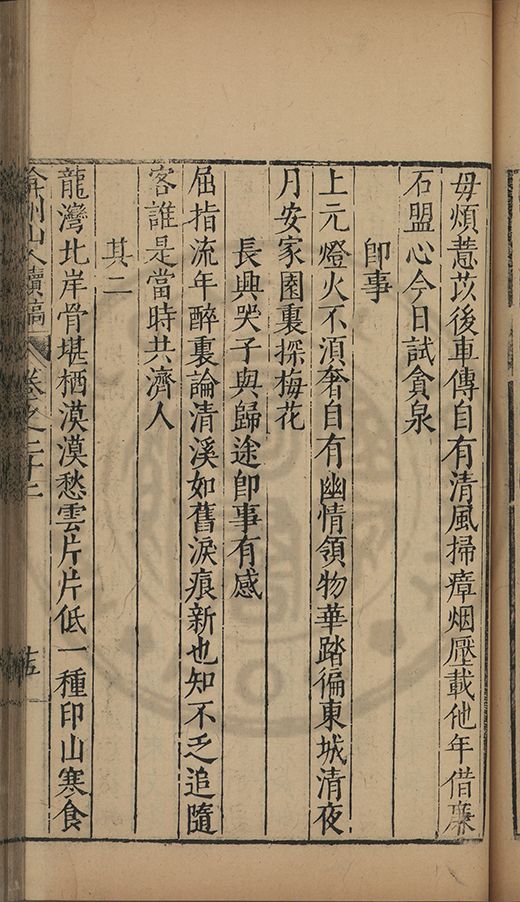 毋煩薏苡後車傳自有清風掃瘴烟壓載他年借廉
石盟心今日試貪泉
即事
上元燈火不湏奢自有幽情領物華踏徧東城清夜
月安家園裏探梅花
長興哭子與歸途即事有感
屈指流年醉裏論清溪如舊淚痕新也知不乏追隨
客誰是當時共濟人
其二
龍灣北岸骨堪栖漠漠愁雲片片低一種印山寒食
弇州山人續稿 卷之二十二 十五